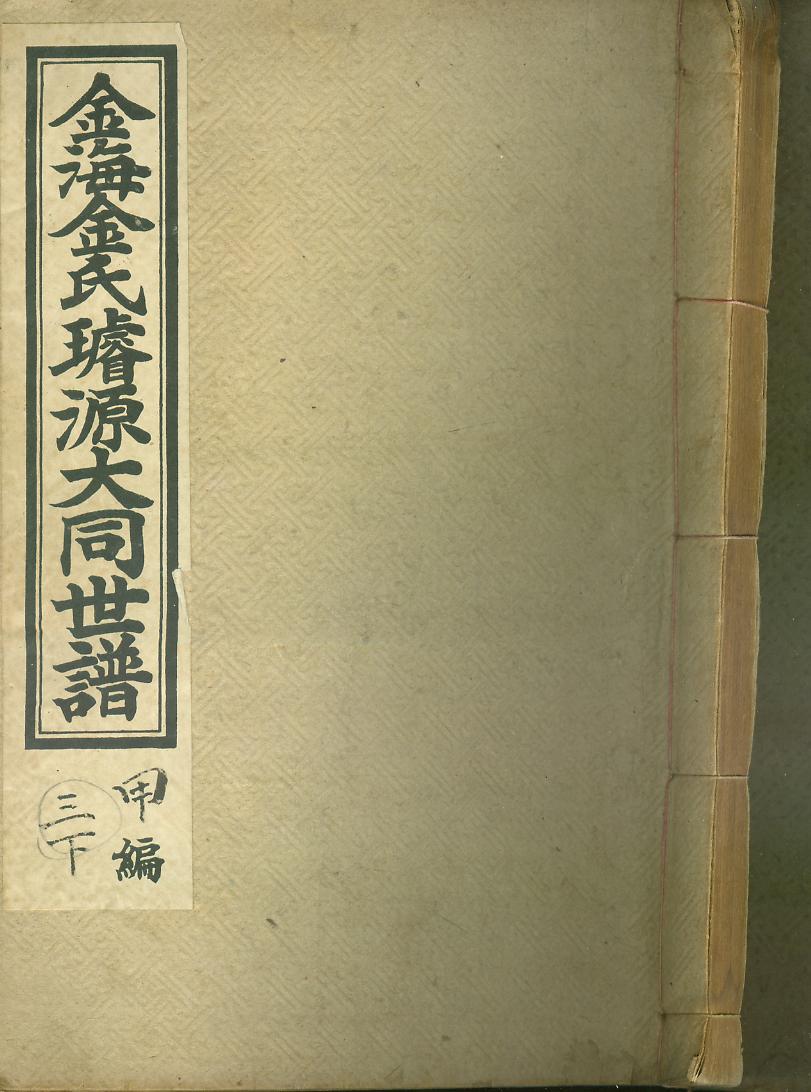 金海金氏璿源大同世譜
甲編
三下